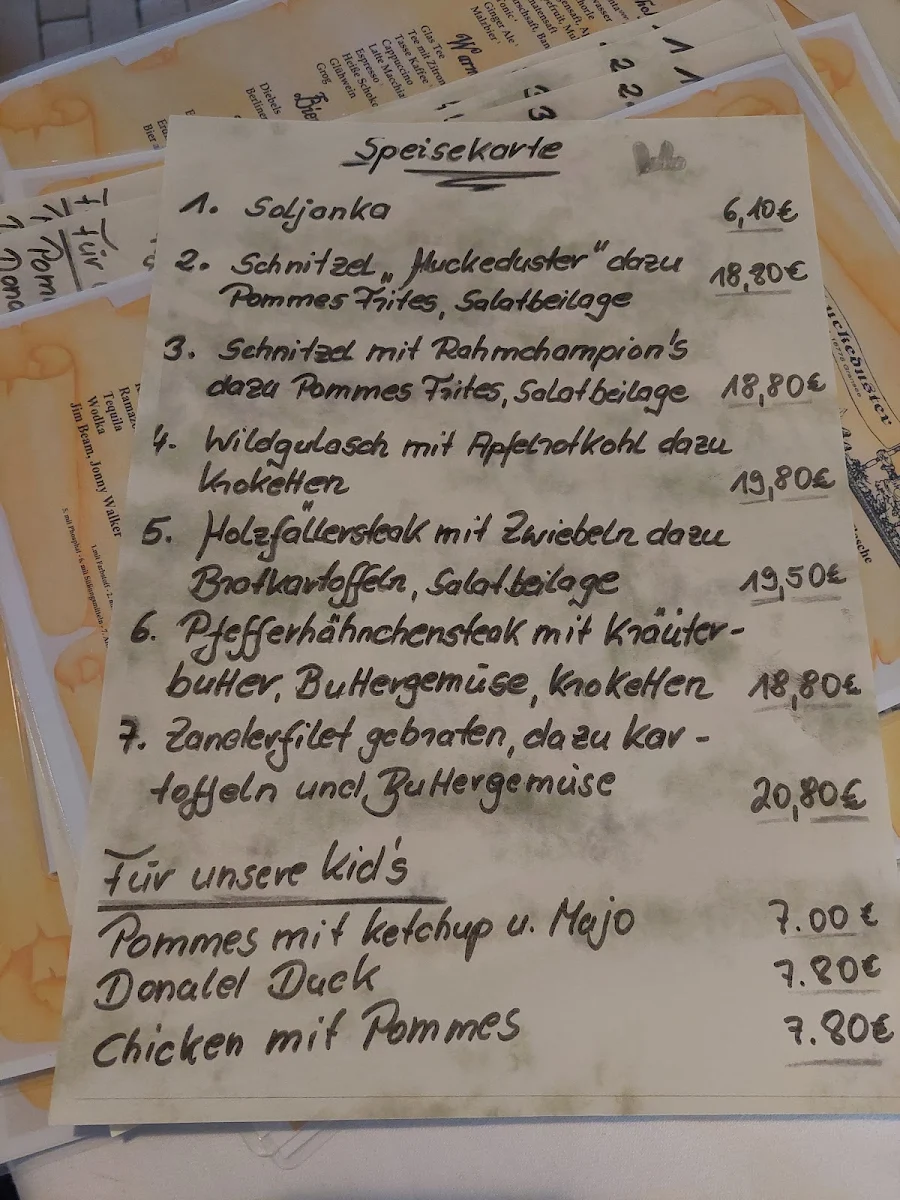 Speisekarte
1. Soljanka 6,10€
2. Schnitzel „Huckeduster" dazu
Pommes Frites, Salatbeilage 18,80€
3. Schnitzel mit Rahmchampion's
dazu Pommes Frites, Salatbeilage 18,80€
4. Wildgulasch mit Apfelrotkohl dazu
Kroketten 19,80€
5. Holzfällersteak mit Zwiebeln dazu
Bratkartoffeln, Salatbeilage 19,50€
6. Pfefferhähnchensteak mit Kräuter-
butter, Buttergemüse, Kroketten 18,80€
7. Zanderfilet gebraten, dazu Kar-
toffeln und Buttergemüse 20,80€
Für unsere Kid's
Pommes mit Ketchup u. Majo 7.00€
Donald Duck 7.80€
Chicken mit Pommes 7.80€
Glas Tee
Tee mit Zitron
Tasse Kaffee
Cappuccino
Latte Macchia
Espresso
Heiße Schoke
Glühwein
Grog
Warn
Ginger Ale
Malzbier
Bier
Diebels
Berliner
Für
Pomm
Dona
Ramaz
Tequila
Wodka
Jim Beam, Jonny Walker
uckeduster